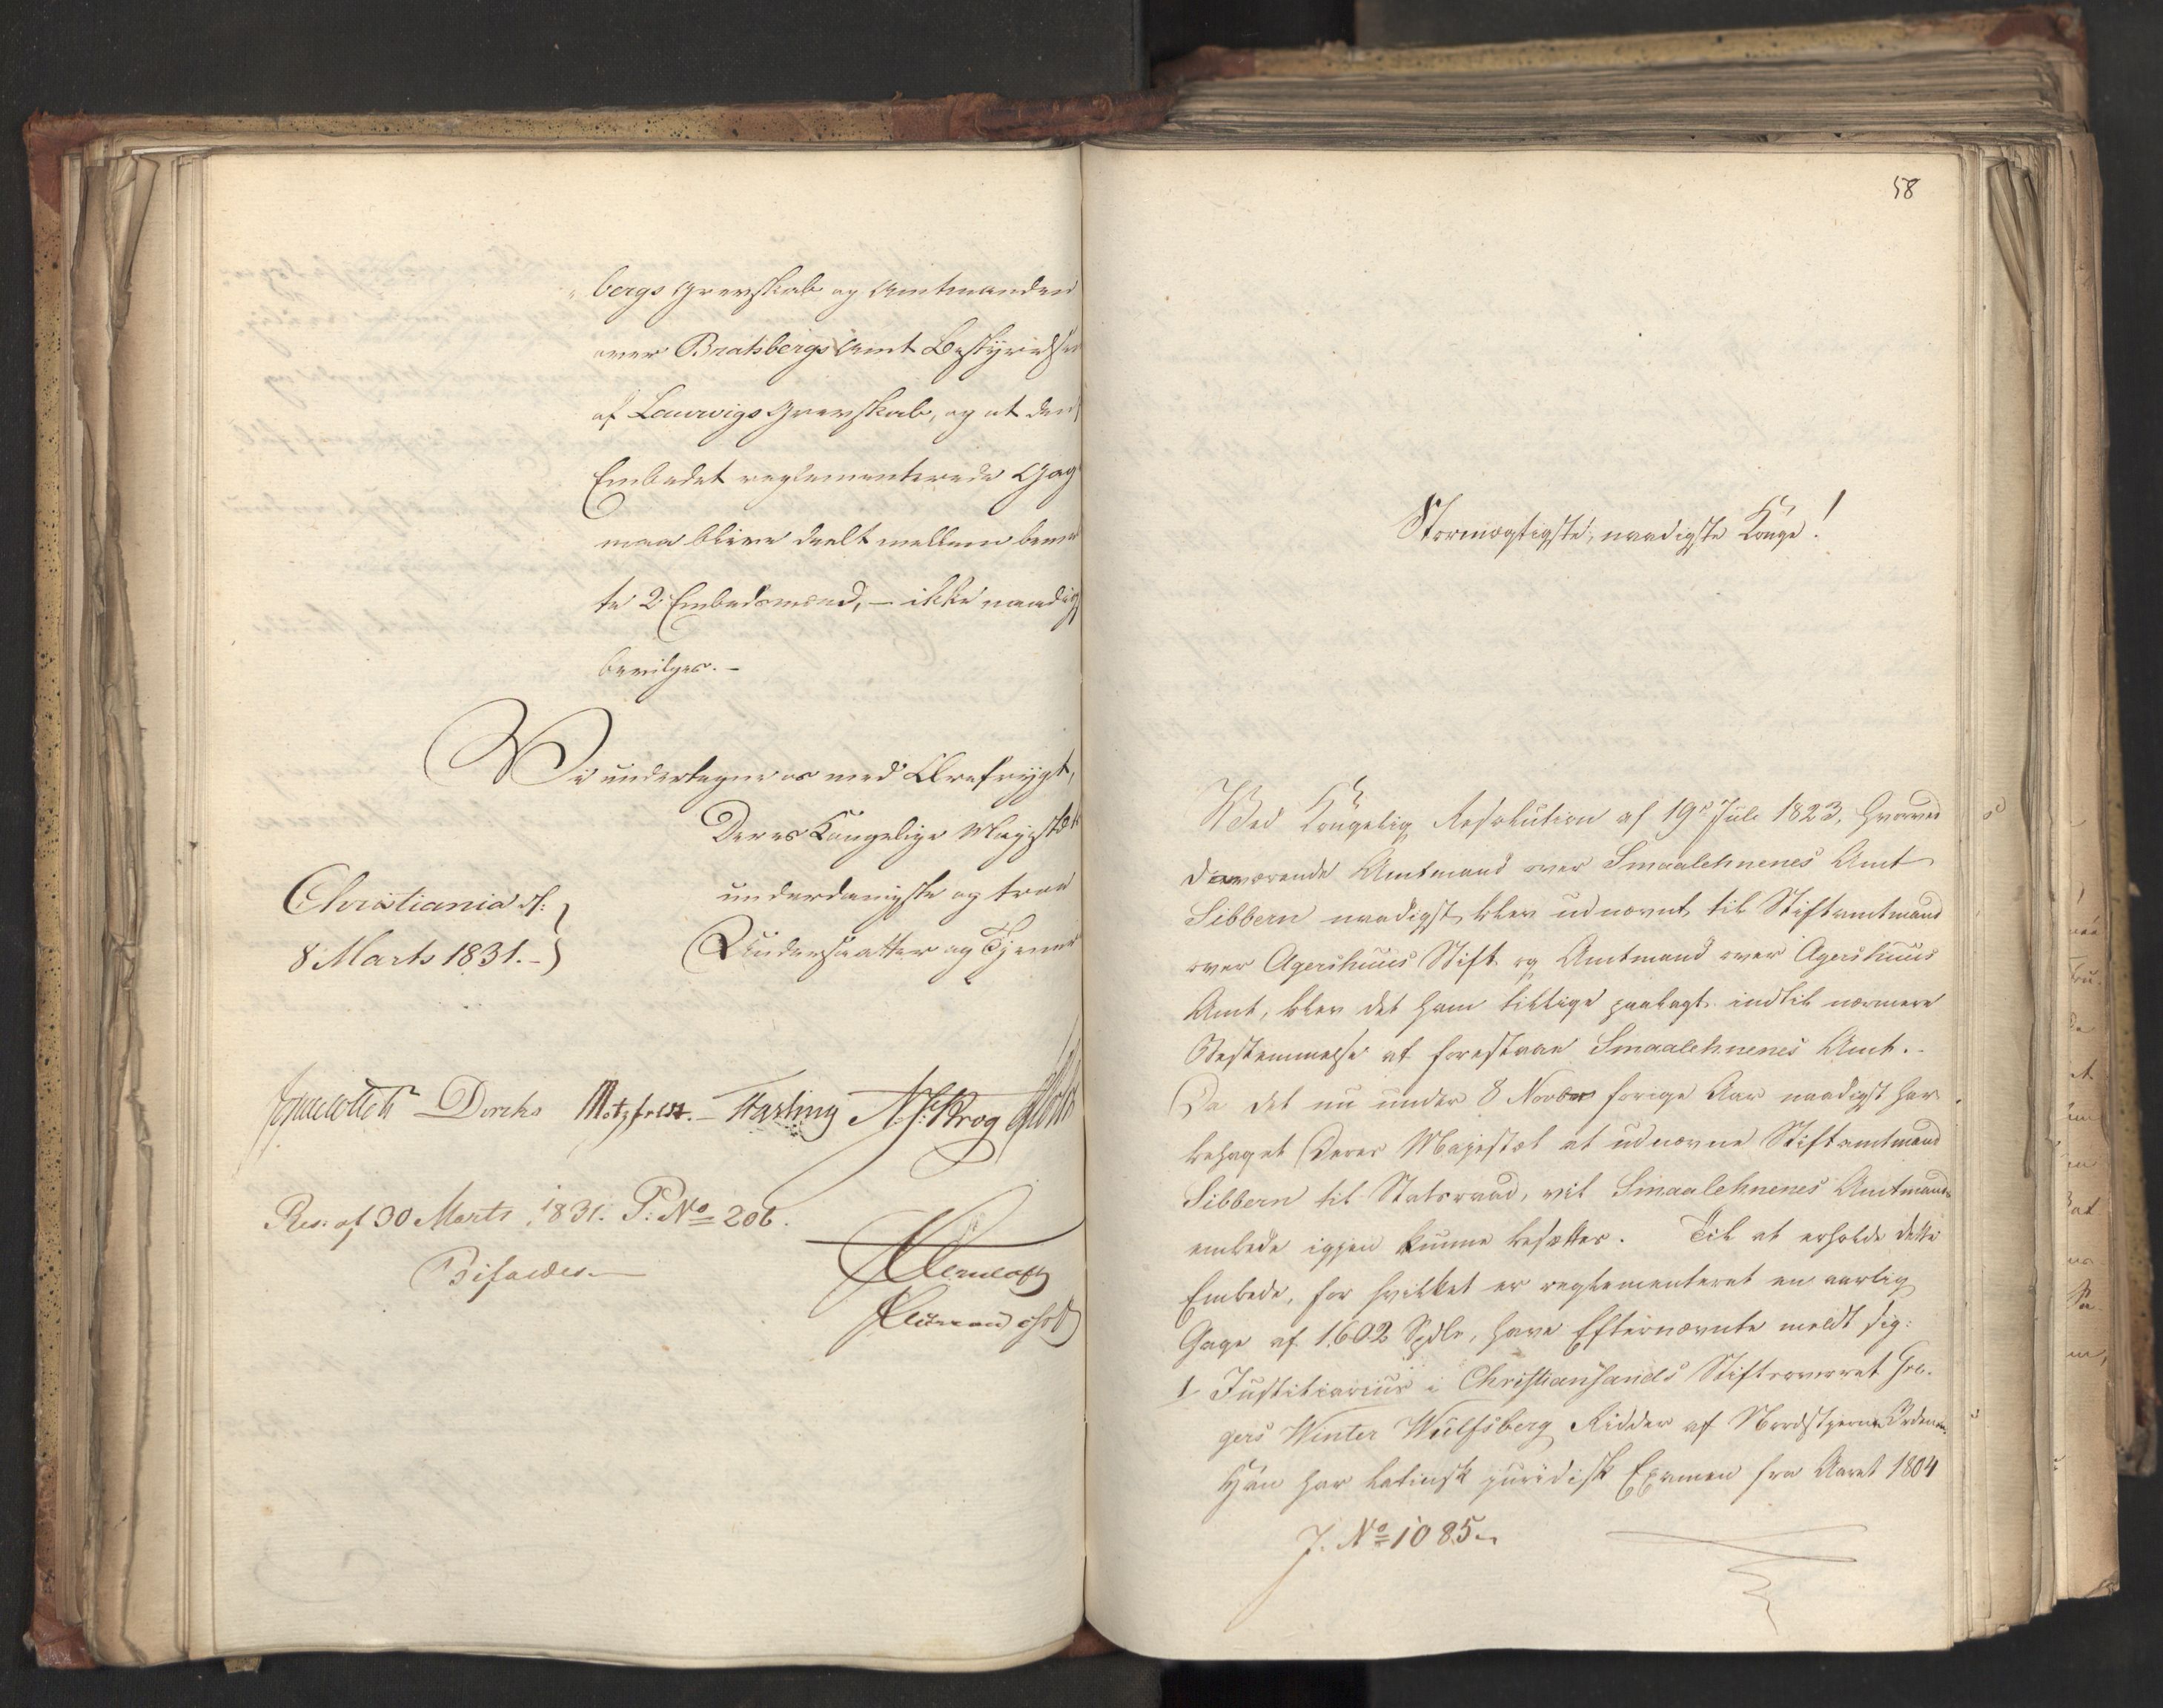 bergs Grevskab og Amtmanden
over Bratsbergs Amt Bestyrelsen
af Laurvigs Grevskab, og at den
Embedet reglementerede Gag
maa blive deelt mellem benæv
te 2 Embedsmænd, – ikke naadig
bevilges. –
Vi undertegne os med Ærefrygt,
Deres Kongelige Majestæt
Christiania d:
underdanigste og troe
8 Marts 1831. –
Undersaatter og Tjenere
Collett Diriks Motzfeldt. Fasting N. J: Krog Holst
Res: af 30 Marts 1831. P: No 206.
Bifaldes. –
58
Stormægtigste, naadigste Konge!
Ved Kongelig Resolution af 19de Juli 1823, hvorved
daværende Amtmand over Smaalehnenes Amt
Sibbern naadigst blev udnævnt til Stiftamtmand
over Agershuus Stift og Amtmand over Agershuus
Amt, blev det ham tillige paalagt indtil nærmere
Bestemmelse at forestaae Smaalehnenes Amt. –
Da det nu under 8 Novber forige Aar naadigst har
behaget Deres Majestæt at udnævne Stiftamtmand
Sibbern til Statsraad, vil Smaalehnenes Amtmands
embede igjen kunne besættes. Til at erholde dette
Embede, for hvilket er reglementeret en aarlig
Gage af 1602 Spdlr, have Efternævnte meldt sig:
1 Justitiarius i Christiansands Stiftsoverret Gre-
gers Winter Wulfsberg Ridder af Nordstjerne Ordenen.
Han har latinsk juridisk Examen fra Aaret 1804
J. No 1085